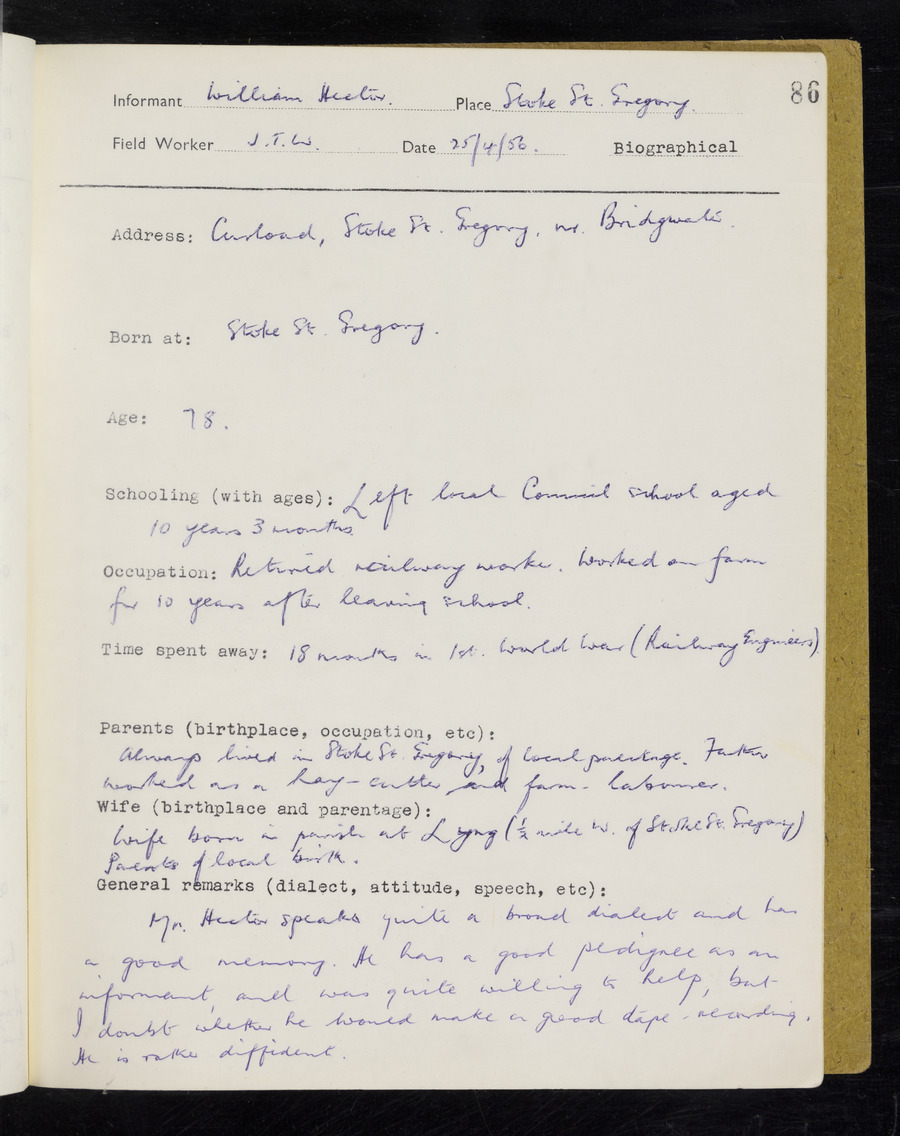 Informant William Hector. Place Stoke St. Gregory. 86
Field Worker J.T.W. Date 25/4/56. Biographical
Address: Curload, Stoke St. Gregory, nr. Bridgwater.
Born at: Stoke St. Gregory.
Age: 78.
Schooling (with ages): Left local Council school aged
10 years 3 months.
Occupation: Retired railway worker. Worked on farm
for 10 years after leaving school.
Time spent away: 18 months in 1st. World War (Railway Engineers)
Parents (birthplace, occupation, etc):
Always lived in Stoke St. Gregory, of local parentage. Father
worked as a hay-cutter and farm-labourer.
Wife (birthplace and parentage):
Wife born in parish at Lyng (½ mile W. of St. Stoke St. Gregory)
Parents of local birth.
General remarks (dialect, attitude, speech, etc):
Mr. Hector speaks quite a broad dialect and has
a good memory. He has a good pedigree as an
informant, and was quite willing to help, but
I doubt whether he would make a good tape-recording.
He is rather diffident.